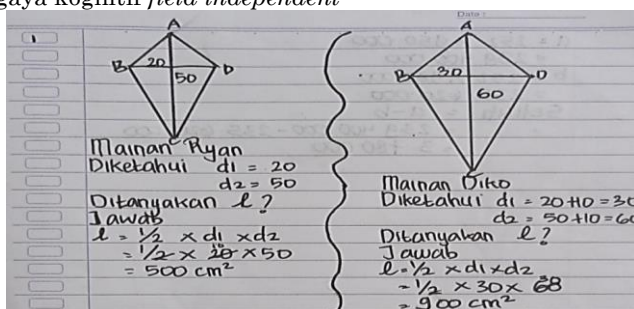 gaya kognitif field independent
Date :
1
A
B 20 D
50
Mainan Ryan
Diketahui d1 = 20
d2 = 50
Ditanyakan L?
Jawab
L = 1/2 x d1 x d2
= 1/2 x 20 x 50
= 500 cm²
A
B 30 D
60
Mainan Diko
Diketahui d1 = 20+10 = 30
d2 = 50+10 = 60
Ditanyakan L?
Jawab
L = 1/2 x d1 x d2
= 1/2 x 30 x 60
= 900 cm²